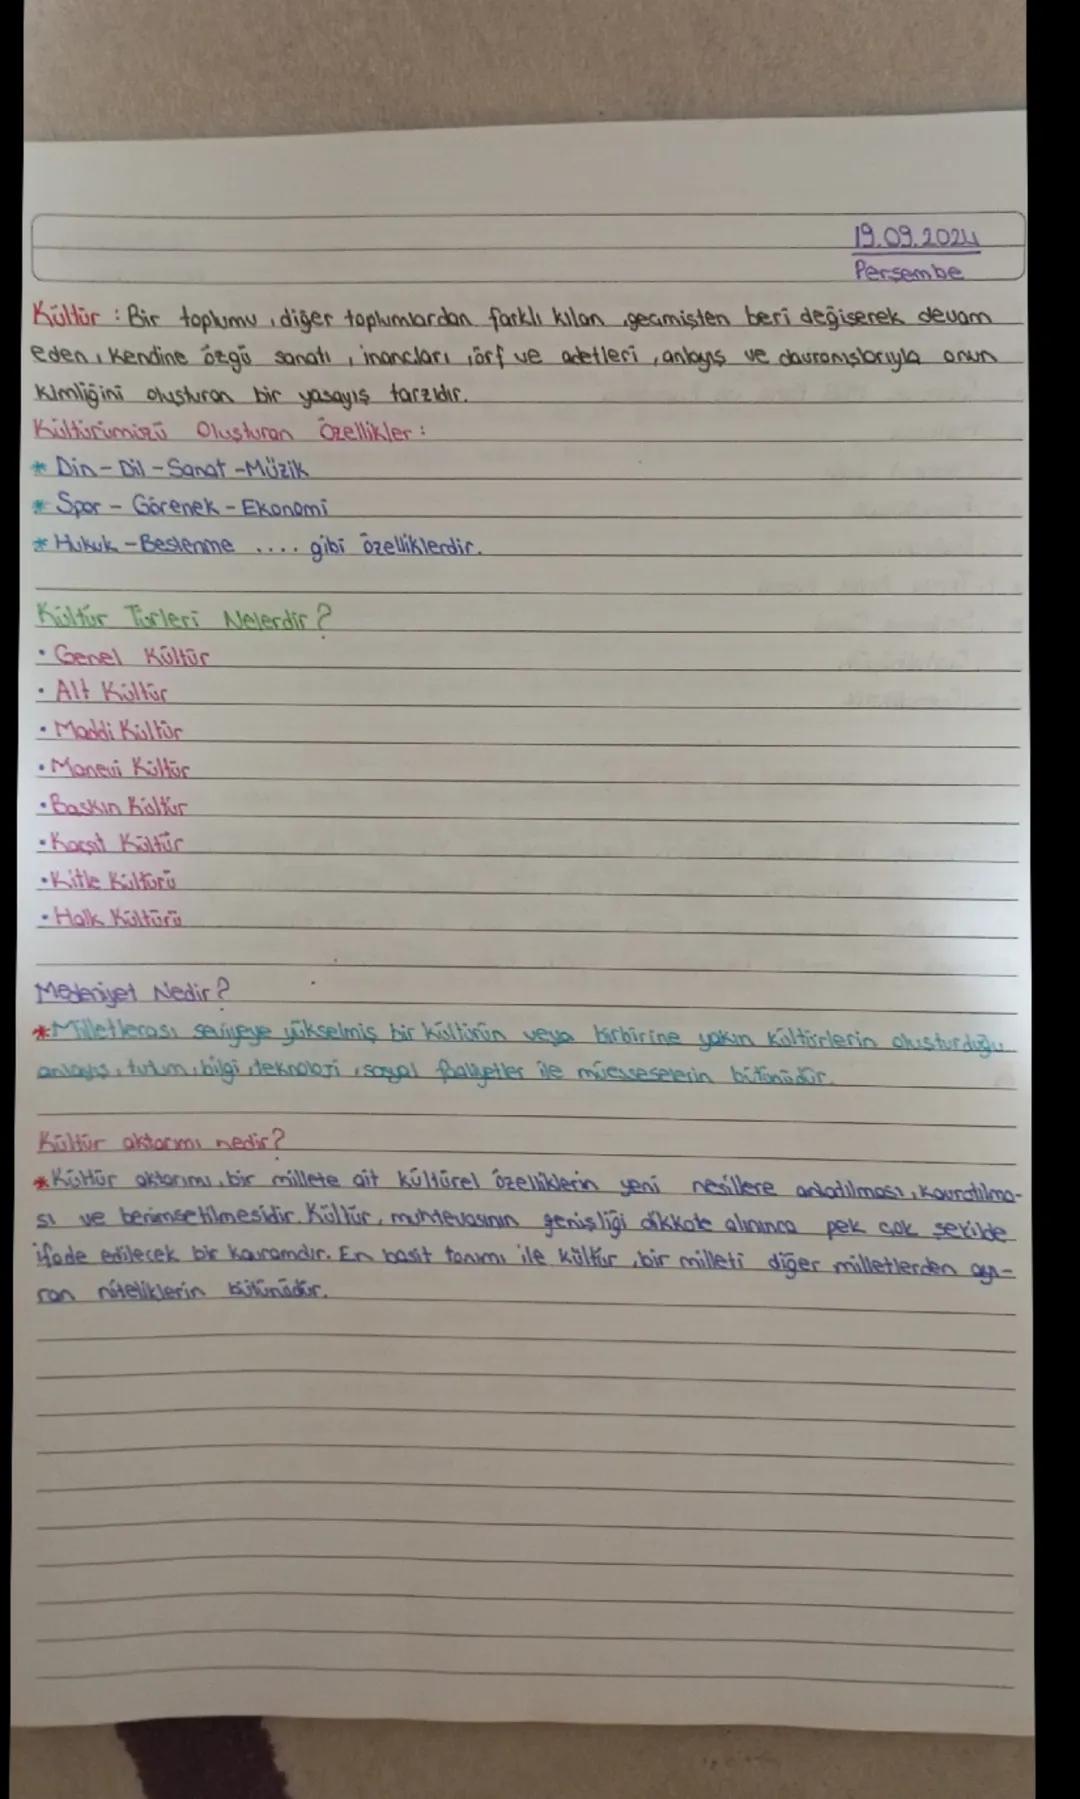 19.09.2024
Perşembe
Kültür : Bir toplumu, diğer toplumlardan farklı kılan, geçmişten beri değişerek devam
eden, kendine özgü sanatı, inançları, örf ve adetleri, anlayış ve davranışlarıyla onun
kimliğini oluşturan bir yaşayış tarzıdır.
Kültürümüzü Oluşturan Özellikler :
* Din - Dil - Sanat - Müzik
* Spor - Görenek - Ekonomi
* Hukuk - Beslenme .... gibi özelliklerdir.
Kültür Türleri Nelerdir?
• Genel Kültür
• Alt Kültür
• Maddi Kültür
• Manevi Kültür
• Baskın Kültür
• Karşıt Kültür
• Kitle Kültürü
• Halk Kültürü
Medeniyet Nedir?
* Milletlerası seviyeye yükselmiş bir kültürün veya birbirine yakın kültürlerin oluşturduğu
anlayış, tutum, bilgi, teknoloji, sosyal faliyetler ile müesseselerin bütünüdür.
Kültür aktarımı nedir?
* Kültür aktarımı, bir millete ait kültürel özelliklerin yeni nesillere anlatılması, kavratılma-
sı ve benimsetilmesidir. Kültür, muhtevasının genişliği dikkate alınınca pek çok şekilde
ifade edilecek bir kavramdır. En basit tanımı ile kültür, bir milleti diğer milletlerden ayı-
ran niteliklerin bütünüdür.